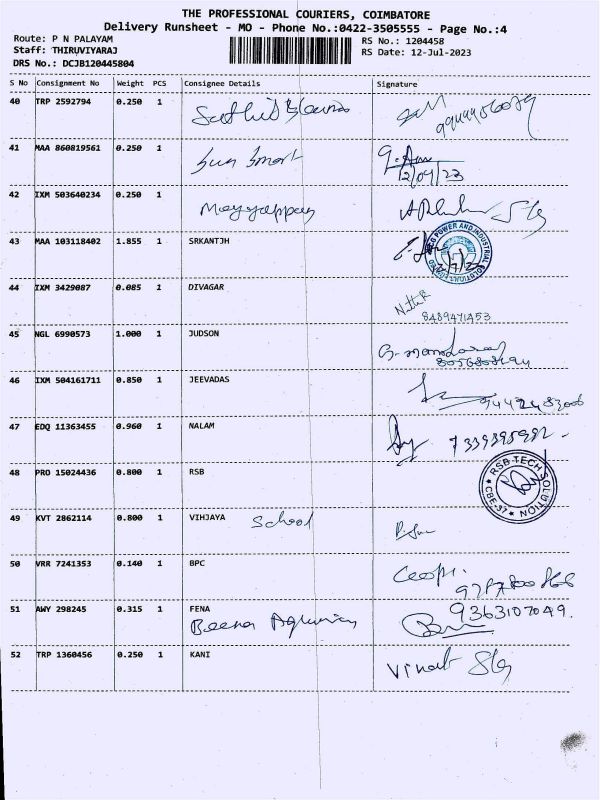 THE PROFESSIONAL COURIERS, COIMBATORE
Delivery Runsheet - MO - Phone No.:0422-3505555 - Page No.:4
Route: P N PALAYAM
RS No.: 1204458
Staff: THIRUVIYARAJ
RS Date: 12-Jul-2023
DRS No.: DCJB120445804
S No Consignment No Weight PCS Consignee Details Signature
40 TRP 2592794 0.250 1
41 MAA 860819561 0.250 1 Sun Smart
12/07/23
42 IXM 503640234 0.250 1 Mayyappan
43 MAA 103118402 1.855 1 SRKANTJH
POWER AND INDUSTRIAL SOLUTIONS
44 IXM 3429087 0.085 1 DIVAGAR
8489471453
45 NGL 6990573 1.000 1 JUDSON
46 IXM 504161711 0.850 1 JEEVADAS
47 EDQ 11363455 0.960 1 NALAM
48 PRO 15024436 0.800 1 RSB
RSB-TECH SOLUTION
CBE-37
49 KVT 2862114 0.800 1 VIHJAYA School
50 VRR 7241353 0.140 1 BPC
51 AWY 298245 0.315 1 FENA
9363107049.
Beena
52 TRP 1360456 0.250 1 KANI